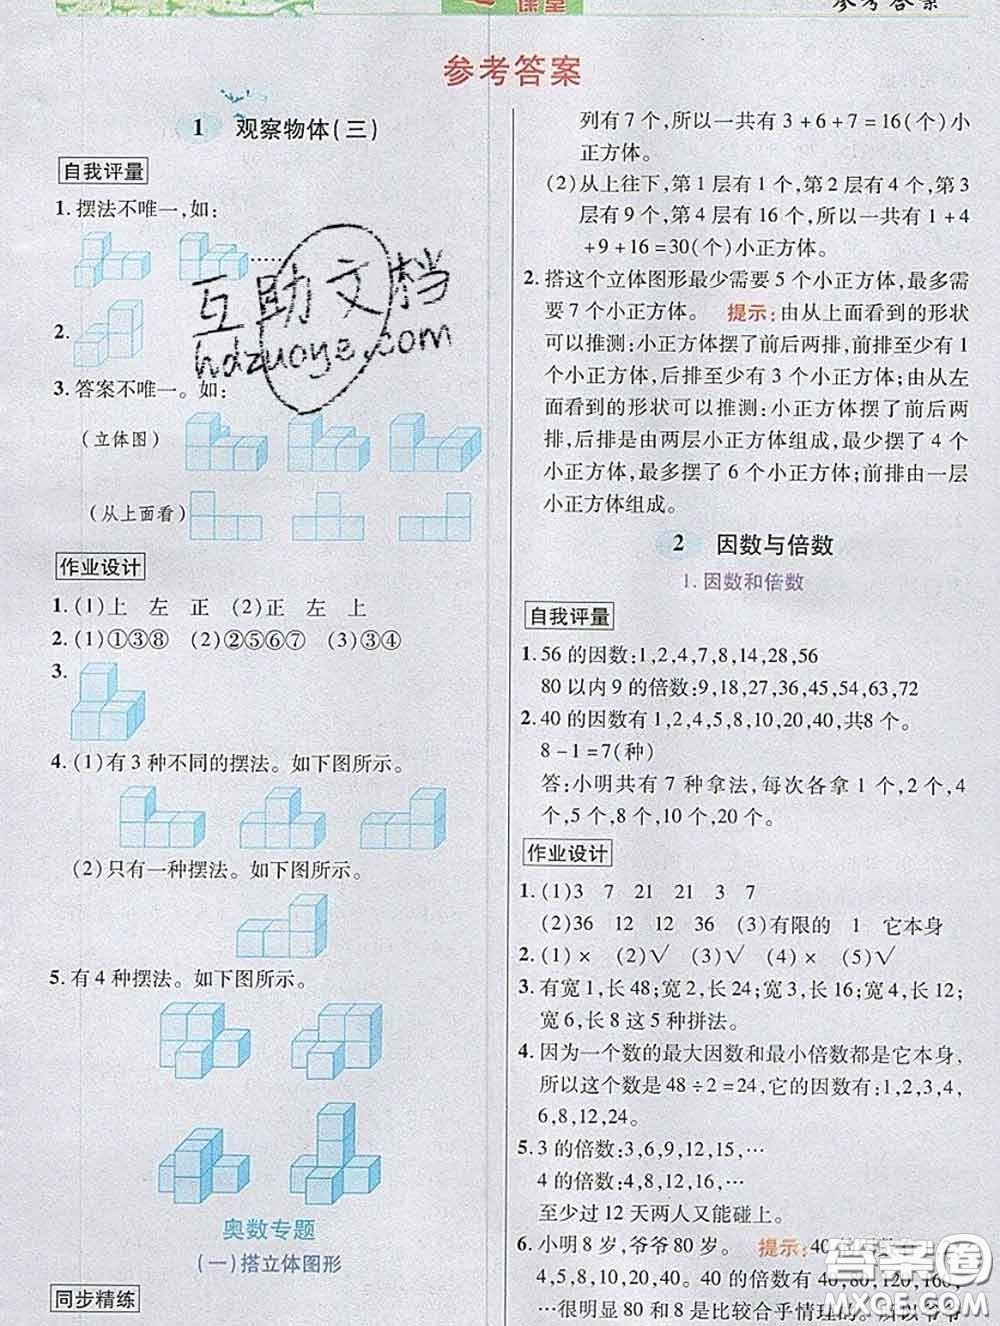 课堂
参考答案
参考答案
1 观察物体(三)
自我评量
1. 摆法不唯一,如:
……
2.
3. 答案不唯一。如:
(立体图)
(从上面看)
作业设计
1. (1)上 左 正 (2)正 左 上
2. (1)①③⑧ (2)②⑤⑥⑦ (3)③④
3.
4. (1)有3种不同的摆法。如下图所示。
(2)只有一种摆法。如下图所示。
5. 有4种摆法。如下图所示。
奥数专题
(一)搭立体图形
同步精练
列有7个,所以一共有3+6+7=16(个)小
正方体。
(2)从上往下,第1层有1个,第2层有4个,第3
层有9个,第4层有16个,所以一共有1+4
+9+16=30(个)小正方体。
2. 搭这个立体图形最少需要5个小正方体,最多需
要7个小正方体。 提示:由从上面看到的形状
可以推测:小正方体摆了前后两排,前排至少有1
个小正方体,后排至少有3个小正方体;由从左
面看到的形状可以推测:小正方体摆了前后两
排,后排是由两层小正方体组成,最少摆了4个
小正方体,最多摆了6个小正方体;前排由一层
小正方体组成。
2 因数与倍数
1. 因数和倍数
自我评量
1. 56的因数:1,2,4,7,8,14,28,56
80以内9的倍数:9,18,27,36,45,54,63,72
2. 40的因数有1,2,4,5,8,10,20,40,共8个。
8-1=7(种)
答:小明共有7种拿法,每次各拿1个,2个,4
个,5个,8个,10个,20个。
作业设计
1. (1)3 7 21 21 3 7
(2)36 12 12 36 (3)有限的 1 它本身
2. (1)× (2)√ (3)√ (4)× (5)√
3. 有宽1,长48;宽2,长24;宽3,长16;宽4,长12;
宽6,长8这5种拼法。
4. 因为一个数的最大因数和最小倍数都是它本身,
所以这个数是48÷2=24,它的因数有:1,2,3,4,
6,8,12,24。
5. 3的倍数:3,6,9,12,15,…
4的倍数:4,8,12,16,…
至少过12天两人又能碰上。
6. 小明8岁,爷爷80岁。 提示:40
4,5,8,10,20,40。40的倍数有40,80,120,160,
…很明显80和8是比较合乎情理的。所以爷爷
互助文档
hdzuoye.com
答案圈
MXQE.COM